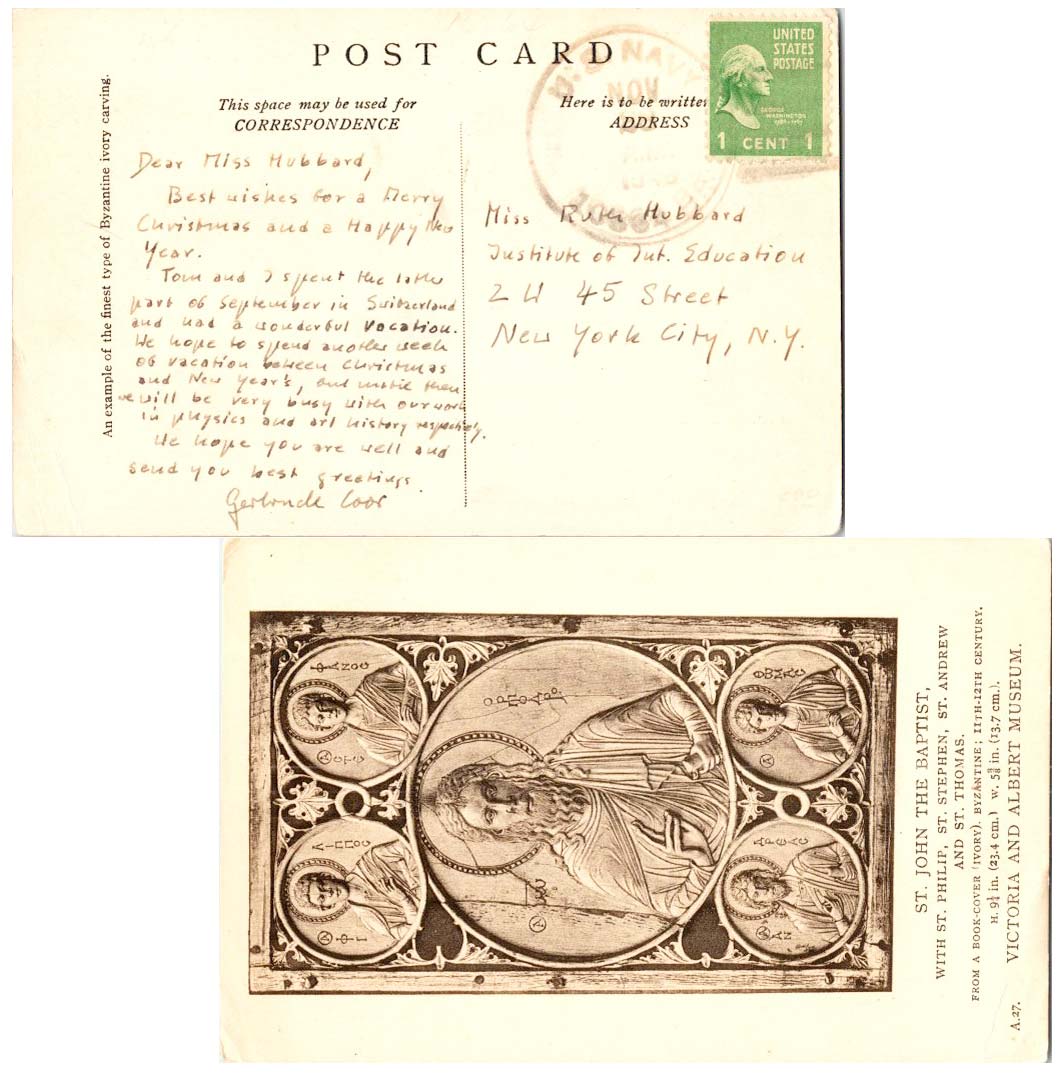 POST CARD
This space may be used for
CORRESPONDENCE
Here is to be writte
ADDRESS
An example of the finest type of Byzantine ivory carving.
U.S. NAVY
NOV
UNITED
STATES
POSTAGE
GEORGE
WASHINGTON
1 CENT 1
Dear Miss Hubbard,
Best wishes for a Merry
Christmas and a Happy New
Year.
Tom and I spent the latter
part of September in Switzerland
and had a wonderful vocation.
We hope to spend another week
of vacation between Christmas
and New Year's, and until then
we will be very busy with our work
in physics and art history respectively.
We hope you are well and
send you best greetings.
Gertrude Coor
Miss Ruth Hubbard
Institute of Int. Education
2 W 45 Street
New York City, N.Y.
ST. JOHN THE BAPTIST,
WITH ST. PHILIP, ST. STEPHEN, ST. ANDREW
AND ST. THOMAS.
FROM A BOOK-COVER (IVORY). BYZANTINE; 11TH-12TH CENTURY.
H. 9¼ in. (23.4 cm.) W. 5⅜ in. (13.7 cm.).
A.27. VICTORIA AND ALBERT MUSEUM.